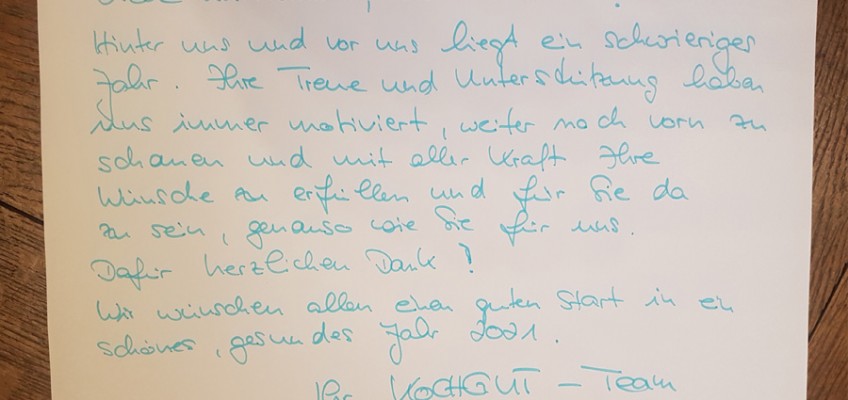 Hinter uns und vor uns liegt ein schwieriges
Jahr. Ihre Treue und Unterstützung haben
uns immer motiviert, weiter nach vorn zu
schauen und mit aller Kraft Ihre
Wünsche zu erfüllen und für Sie da
zu sein, genauso wie Sie für uns.
Dafür herzlichen Dank!
Wir wünschen allen einen guten Start in ein
schönes, gesundes Jahr 2021.
Ihr KOCHGUT - Team